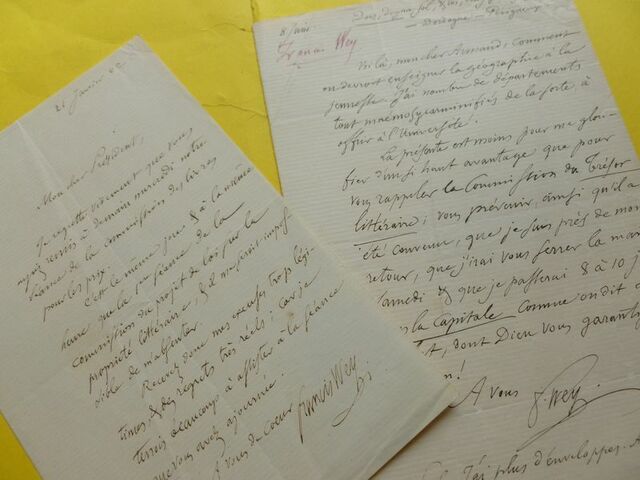 21 Janvier 62
Mon cher Président,
Je regrette vivement que vous
ayez remis à demain mercredi notre
séance de la commission des livres
pour les prix.
C'est le même jour & à la même
heure que la séance de la
commission du projet de loi sur la
propriété littéraire, & il me serait impos-
sible de m'absenter.
Recevez donc mes excuses trop légi-
times & des regrets très réels ; car je
tenais beaucoup à assister à la séance
que vous avez ajournée.
A vous de cœur Francis Wey
8 Juin
Francis Wey
Dordogne - Périgueux
Voilà, mon cher Armand, comment
on devroit enseigner la géographie à la
jeunesse. J'ai nombre de départements
tout mnémo de la sorte, à
offrir à l'Université.
La présente est moins pour me glori-
fier d'un si haut avantage que pour
vous rappeler la Commission du Trésor
littéraire ; vous prévenir, ainsi qu'il a
été convenu, que je suis près de mon
retour, que j'irai vous serrer la main
Samedi & que je passerai 8 à 10 j
la Capitale comme on dit
, dont Dieu vous garantisse
!
A vous F. Wey
J'ai plus d'enveloppes. A